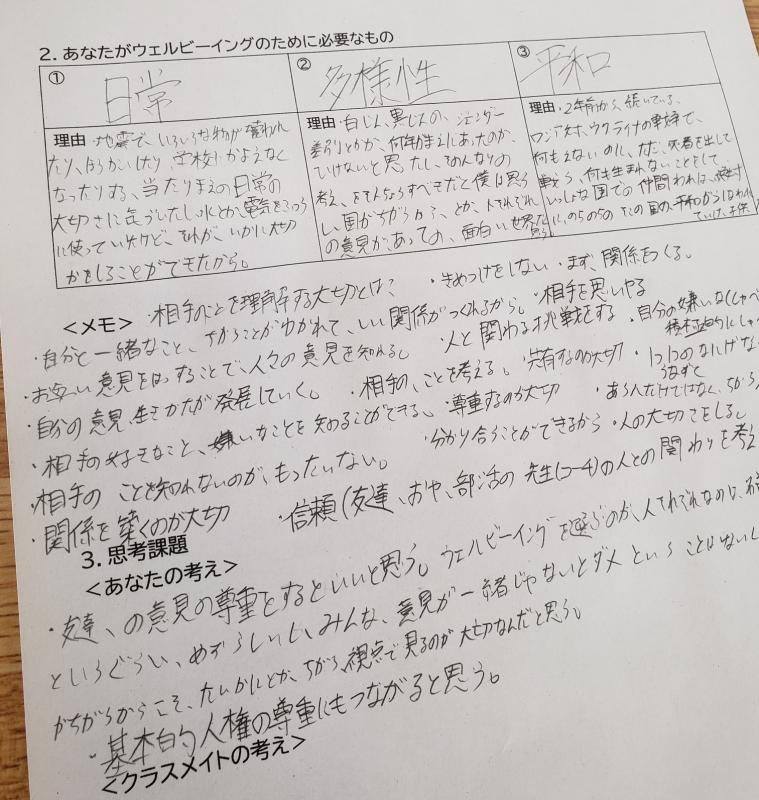 2. あなたがウェルビーイングのために必要なもの
① 日常
② 多様性
③ 平和
理由・地震で、いろいろな物が壊れ
たり、ほうかいしたり、学校にかよえなく
なったりする、当たりまえの日常の
大切さに気づいたし水とか、電気をふつう
に使っていたけど、それが、いかに大切
かをしることができたから。
理由・白じん、黒じんの、ジェンダー
差別とかが、何年前まえにあったのか、
いけないと思ったし、そのみんなの
考え、をそんちょうすべきだと僕は思う
し、国がちがうから、とか、人それぞれ
の意見が、あっての、面白い世界だと
思う。
理由・2年前から、続いている、
ロシア対、ウクライナの戦争で、
何もえないのに、ただ、死者を出して
戦う、何も生まれないことをして
いっしょな国での仲間われは、絶対
<メモ>・相手のことを理解する大切とは?
・きめつけをしない・まず、関係をつくる。
・自分と一緒なこと、ちがうことがわかれて、いい関係がつくれるから。・相手を思いやる
・お互い意見をはっすることで、人々の意見を知れる。 人と関わる挑戦をする・自分の嫌いな
・自分の意見、生きかたが発展していく。・相手の、ことを考える。・共有するのが大切
・相手の好きなこと、嫌いなことを知ることができる。・尊重するのが大切
・相手のことを知れないのが、もったいない。・分かり合うことができるから・人の大切さをしる
・関係を築くのが大切・信頼(友達、おや、部活の先生(コーチ)の人との関わりを考え
3. 思考課題
<あなたの考え>
・友達、の意見の尊重をするといいと思う。ウェルビーイングを選ぶのが、人それぞれなのに、
というぐらい、めずらしいし、みんな、意見が一緒じゃないとダメということはないし
がちがうからこそ、たいわにとか、ちがう、視点で見るのが大切なんだと思う。
・基本的人権の尊重にもつながると思う。
<クラスメイトの考え>